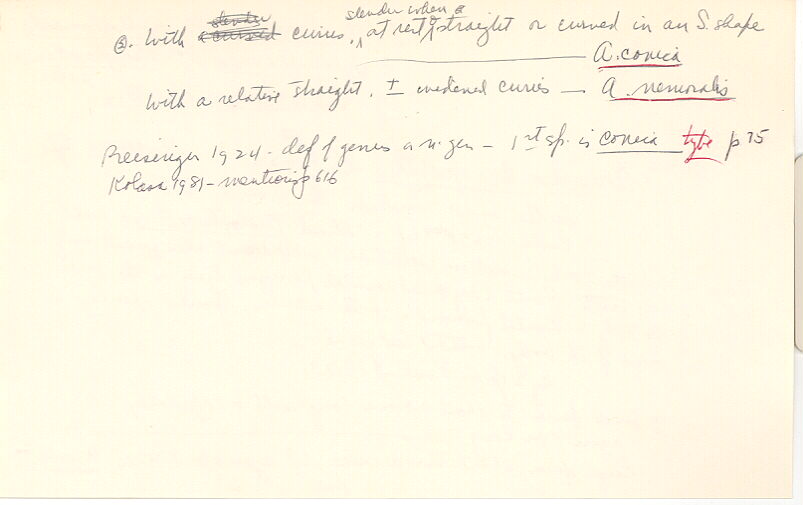 slender slender when a
2. With a curved cirrus, at rest, straight or curved in an S. shape
A. conica
With a relative straight, ± widened cirrus — A. nemoralis
Reisinger 1924 - def of genus a n. gen - 1st sp. is conica type p 75
Kolasa 1981 - mentions p 616